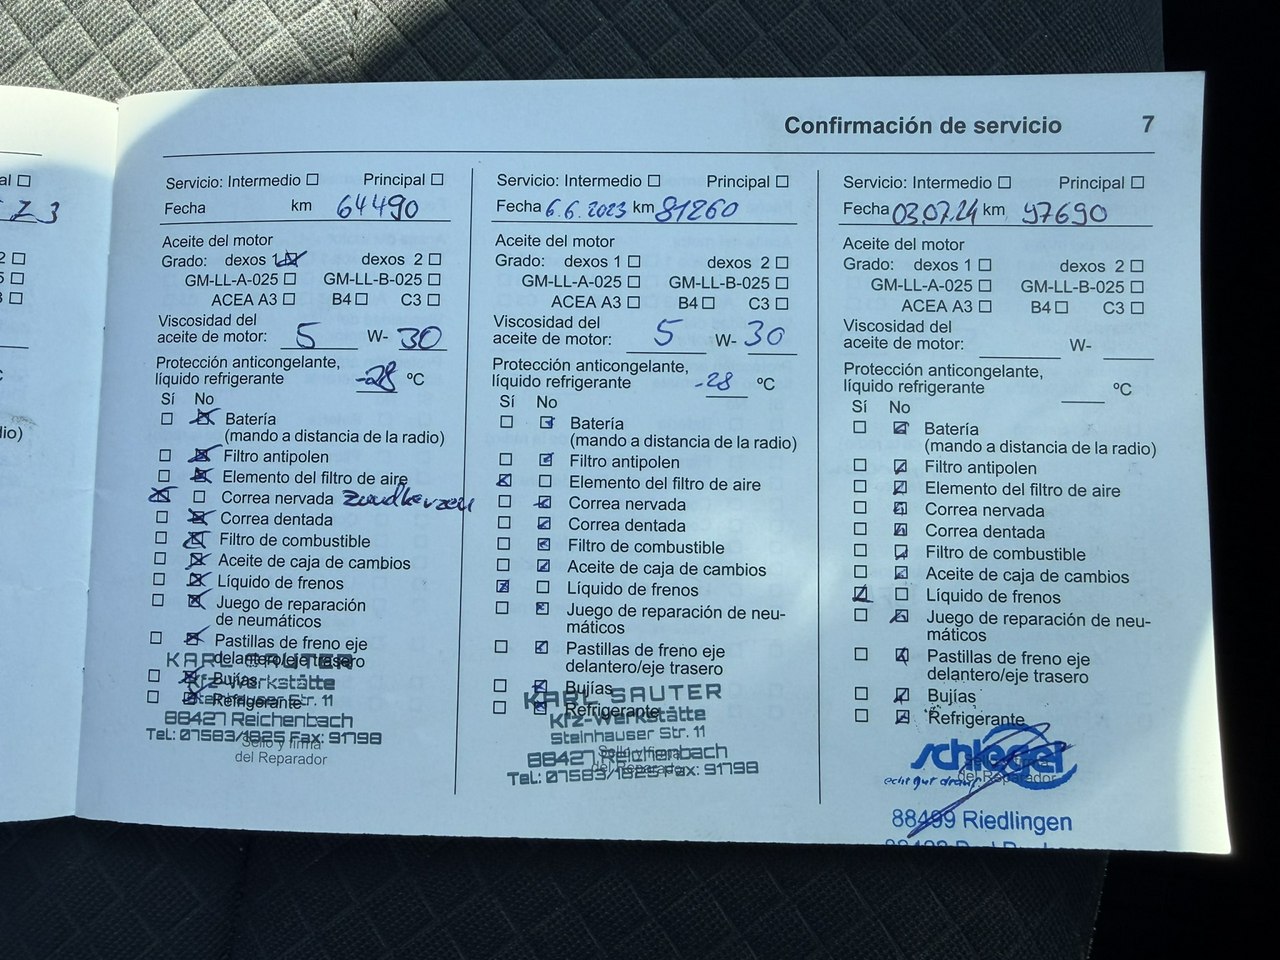 Confirmación de servicio 7
al
Z 3
Servicio: Intermedio Principal
Fecha km 64490
Aceite del motor
Grado: dexos 1 dexos 2
GM-LL-A-025 GM-LL-B-025
ACEA A3 B4 C3
Viscosidad del
aceite de motor: 5 W- 30
Protección anticongelante,
líquido refrigerante -28 ºC
Sí No
Batería
(mando a distancia de la radio)
Filtro antipolen
Elemento del filtro de aire
Correa nervada Zündkerzen
Correa dentada
Filtro de combustible
Aceite de caja de cambios
Líquido de frenos
Juego de reparación
de neumáticos
Pastillas de freno eje
delantero/eje trasero
Bujías
Refrigerante
KARL SAUTER
Kfz-Werkstätte
Steinhauser Str. 11
88427 Reichenbach
Tel.: 07583/1825 Fax: 91798
Sello y firma
del Reparador
Servicio: Intermedio Principal
Fecha 6.6.2023 km 81260
Aceite del motor
Grado: dexos 1 dexos 2
GM-LL-A-025 GM-LL-B-025
ACEA A3 B4 C3
Viscosidad del
aceite de motor: 5 W- 30
Protección anticongelante,
líquido refrigerante -28 ºC
Sí No
Batería
(mando a distancia de la radio)
Filtro antipolen
Elemento del filtro de aire
Correa nervada
Correa dentada
Filtro de combustible
Aceite de caja de cambios
Líquido de frenos
Juego de reparación de neu-
máticos
Pastillas de freno eje
delantero/eje trasero
Bujías
Refrigerante
KARL SAUTER
Kfz-Werkstätte
Steinhauser Str. 11
88427 Reichenbach
Tel.: 07583/1825 Fax: 91798
Sello y firma
del Reparador
Servicio: Intermedio Principal
Fecha 03.07.24 km 97690
Aceite del motor
Grado: dexos 1 dexos 2
GM-LL-A-025 GM-LL-B-025
ACEA A3 B4 C3
Viscosidad del
aceite de motor: W-
Protección anticongelante,
líquido refrigerante ºC
Sí No
Batería
(mando a distancia de la radio)
Filtro antipolen
Elemento del filtro de aire
Correa nervada
Correa dentada
Filtro de combustible
Aceite de caja de cambios
Líquido de frenos
Juego de reparación de neu-
máticos
Pastillas de freno eje
delantero/eje trasero
Bujías
Refrigerante
schlegel
echt gut drauf.
del Reparador
88499 Riedlingen